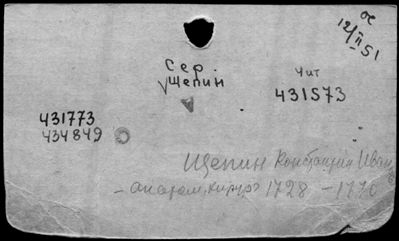 ос
12/II 51
Сер.
Щепин
Чит
431573
431773
434849
Щепин Константин Иван
- анатом, хирург 1728 - 1770